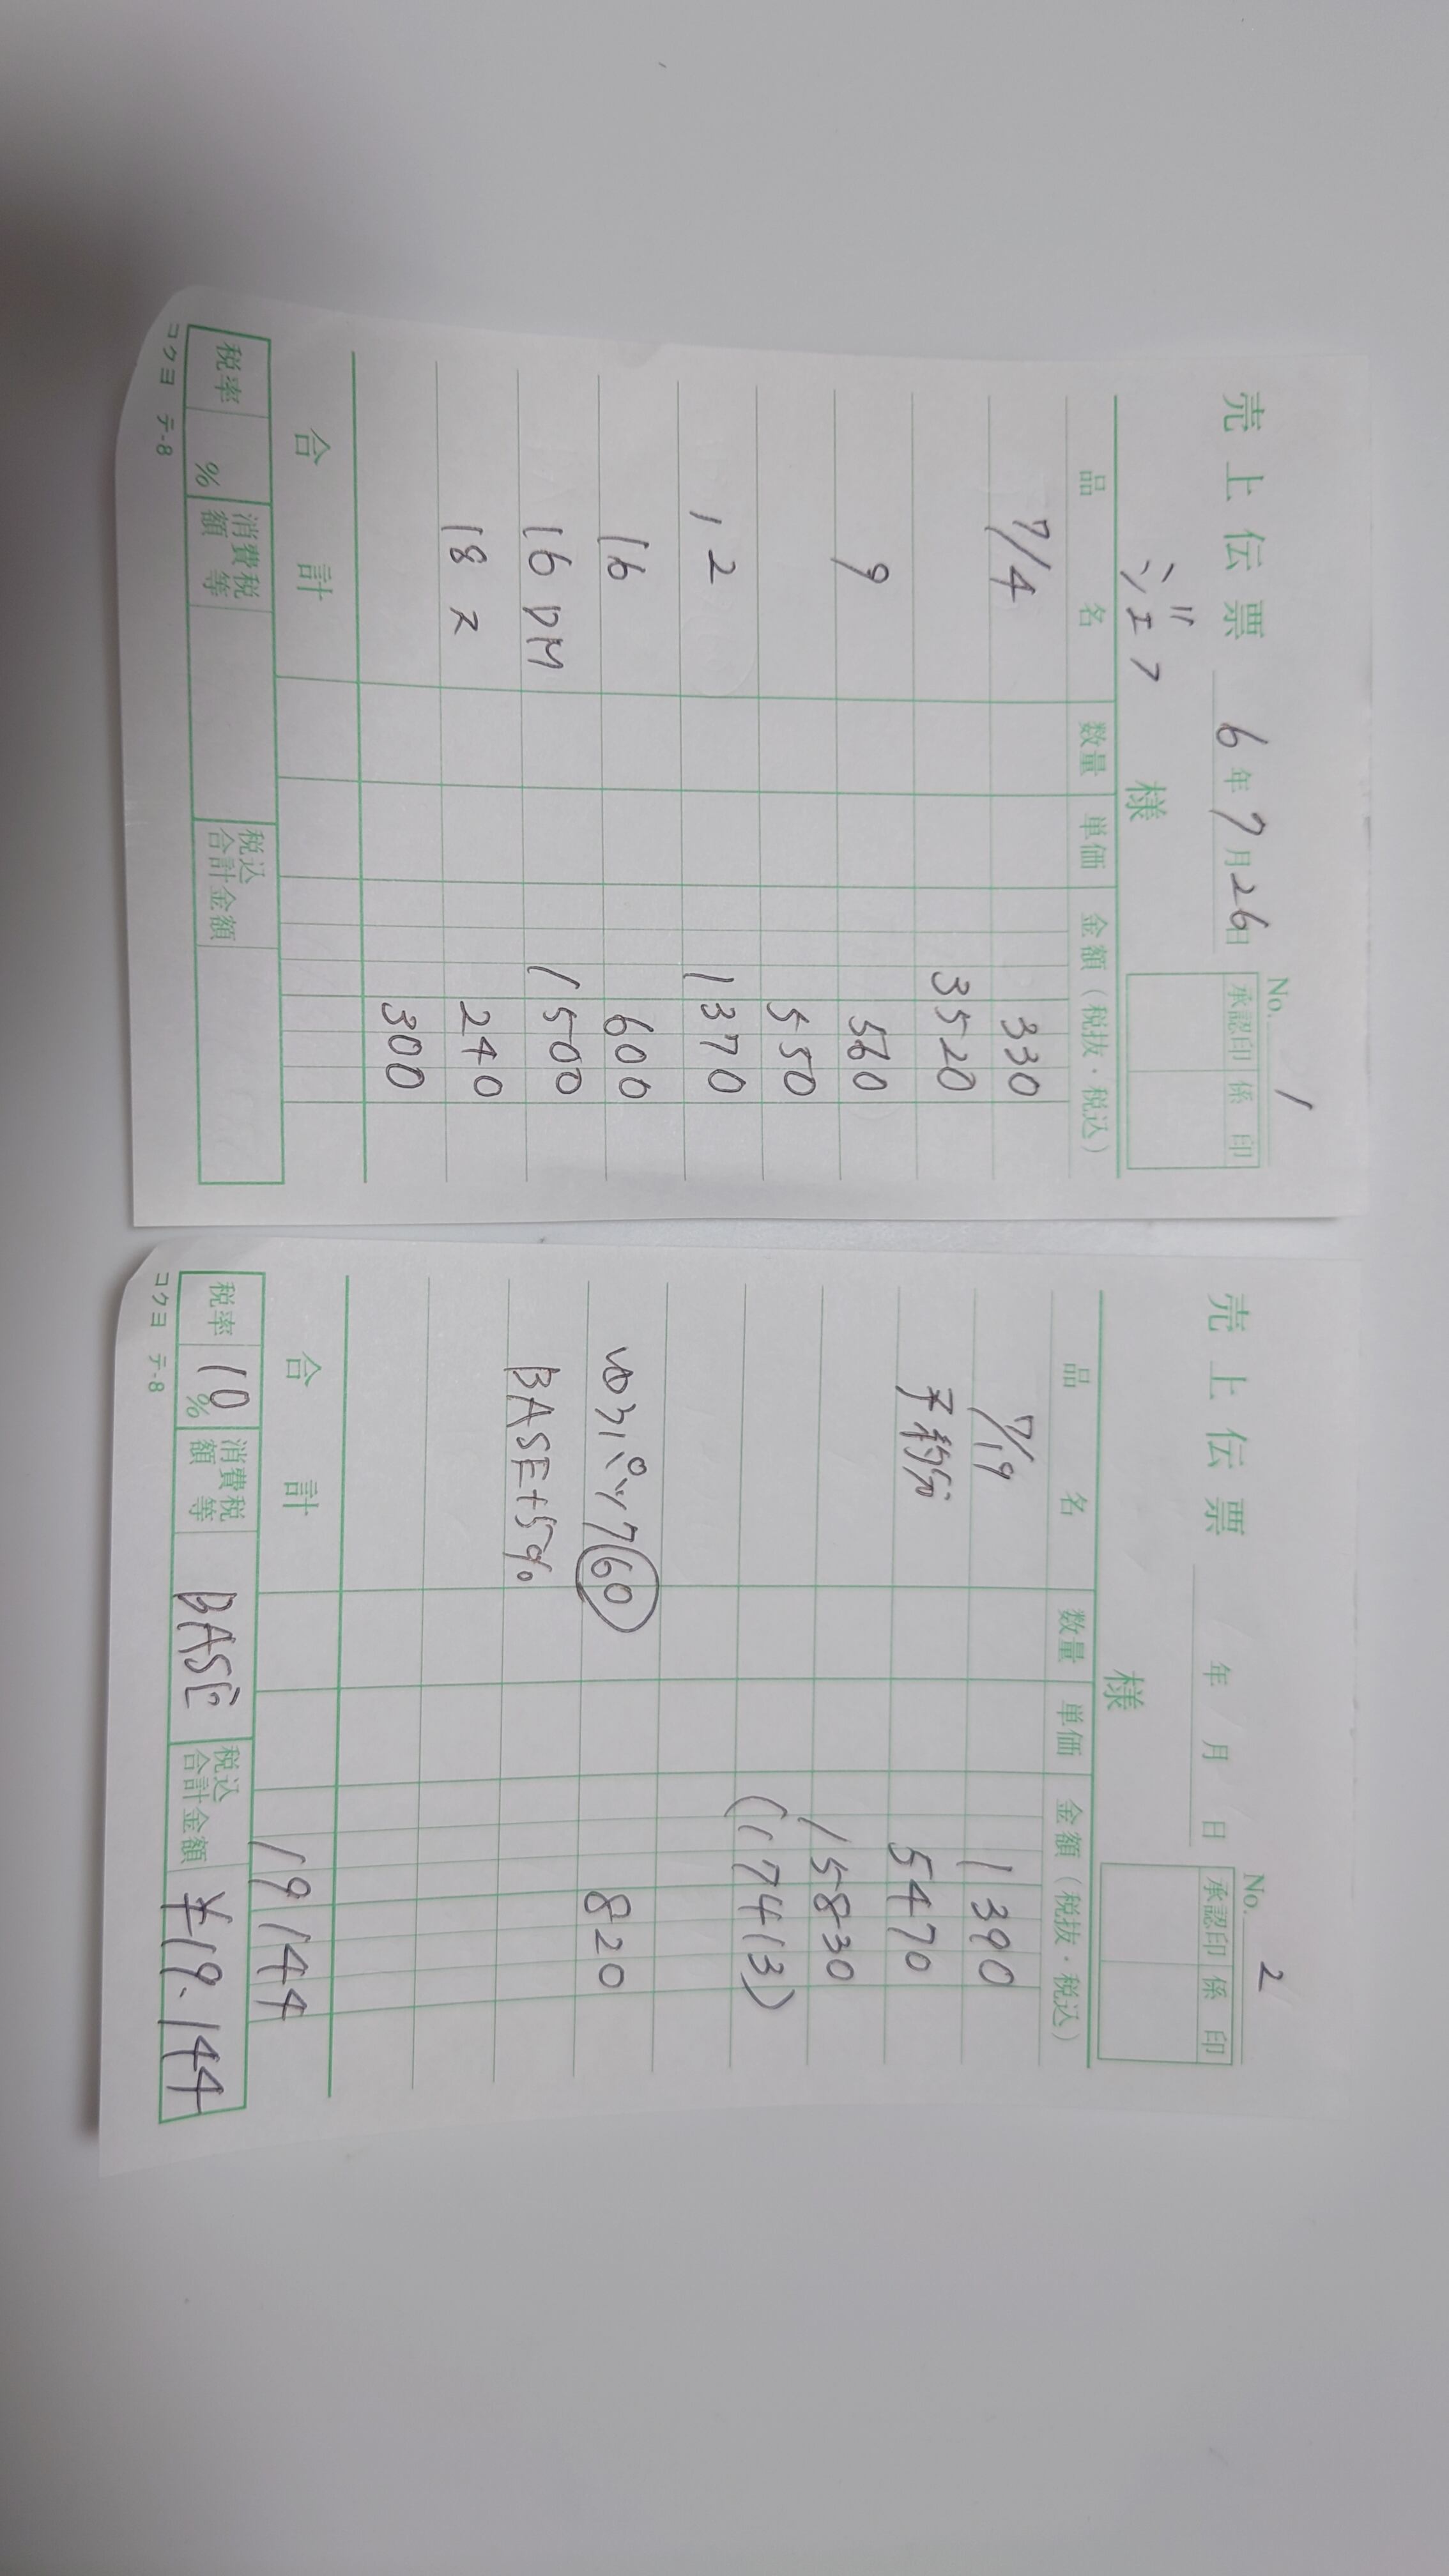 No. 1
売上伝票 6年7月26日
承認印 係印
ジェフ 様
品名 数量 単価 金額(税抜・税込)
7/4 330
3520
9 560
550
12 1370
16 600
16 DM 1500
18 ス 240
300
合計
税率 % 消費税額等 税込合計金額
コクヨ テ-8
No. 2
売上伝票 年 月 日
承認印 係印
様
品名 数量 単価 金額(税抜・税込)
7/19 1390
予約分 5470
15830
(17413)
ゆうパック60 820
BASE+5%
合計 19144
税率 10% 消費税額等 BASE 税込合計金額 ¥19.144
コクヨ テ-8